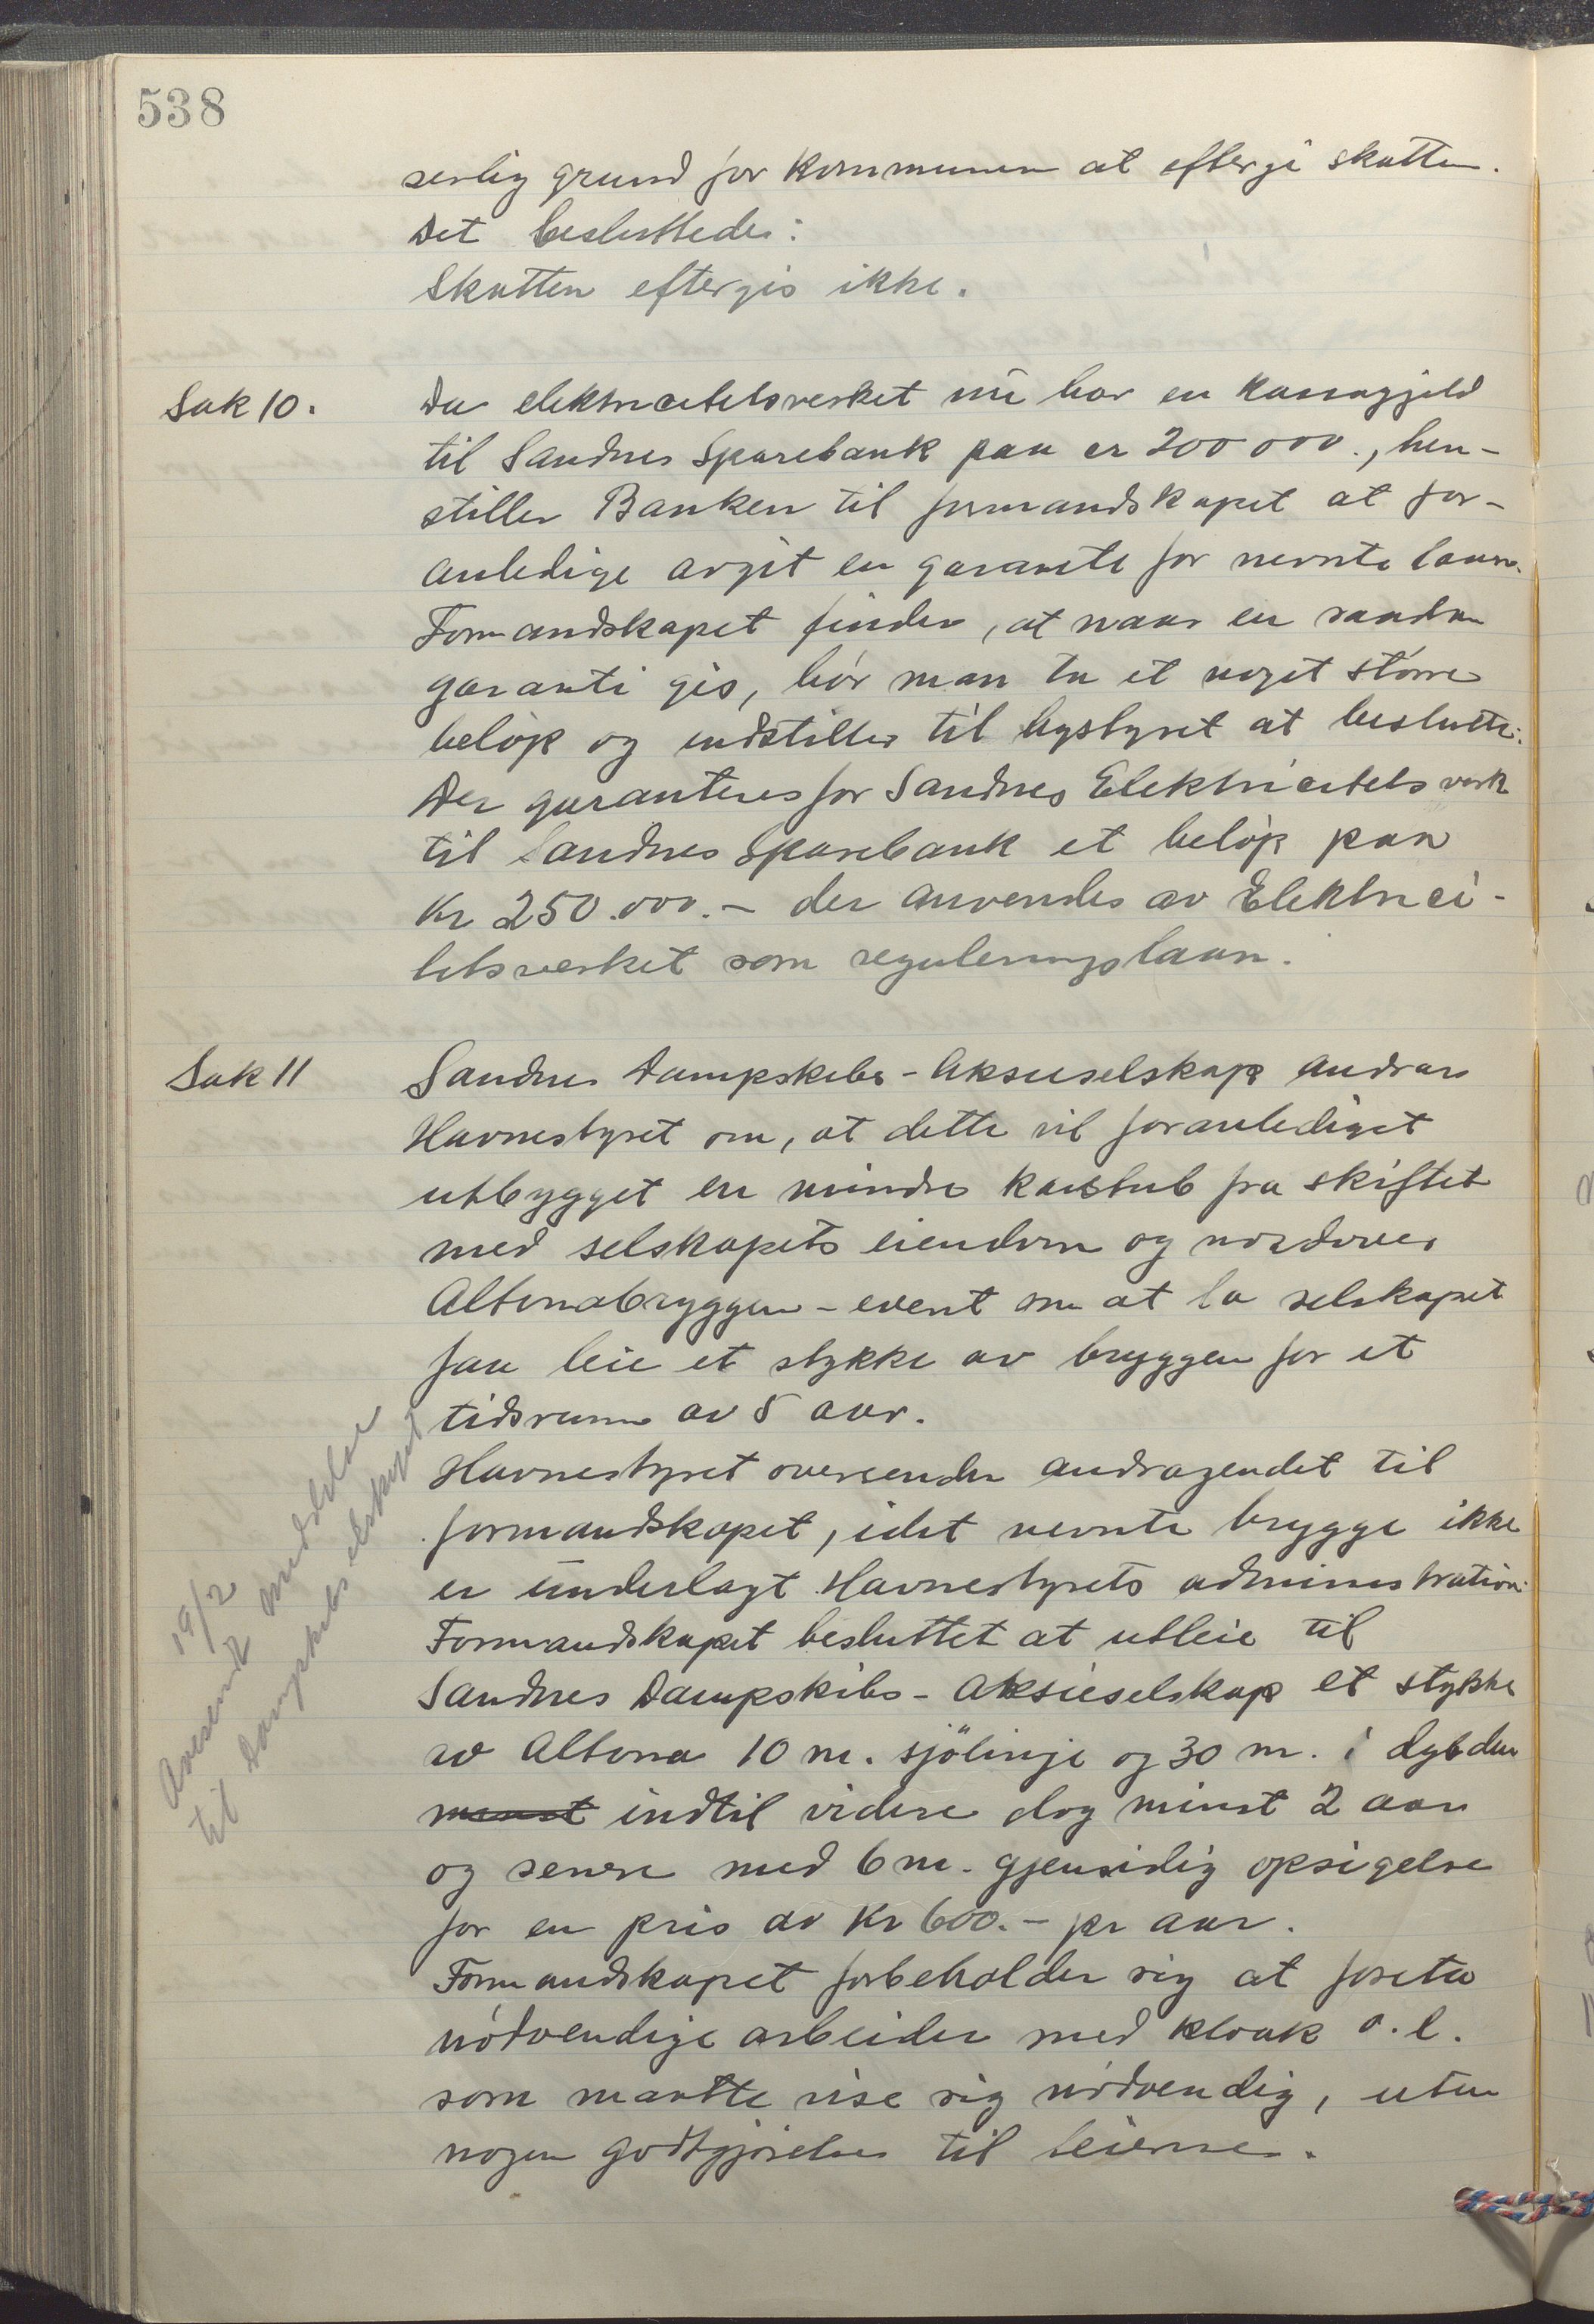 538
serlig grund for kommunen at eftergi skatten.
Det besluttedes:
Skatten eftergis ikke.
Sak 10.
Da elektricitetsverket nu har en kassagjeld
til Sandnes Sparebank paa cr 200 000., hen-
stiller Banken til formandskapet at for-
anledige avgit en garanti for nevnte laan.
Formandskapet finder, at naar en saadan
garanti gis, bör man ta et noget större
belöp og indstiller til bystyret at beslutte:
Der garanteres for Sandnes Elektricitetsverk
til Sandnes Sparebank et belöp paa
Kr 250.000.- der anvendes av Elektrici-
tetsverket som reguleringslaan.
Sak 11
Sandnes Dampskibs-Aksieselskap andrar
Havnestyret om, at dette vil foranlediget
utbygget en mindre kaistub fra skiftet
med selskapets eiendom og nordover
Altonabryggen - event om at la selskapet
faa leie et stykke av bryggen for et
tidsrum av 5 aar.
Havnestyret oversender andragendet til
formandskapet, idet nevnte brygge ikke
er underlagt Havnestyrets administration.
Formandskapet besluttet at utleie til
Sandnes Dampskibs-Aksieselskap et stykke
av Altona 10 m. sjölinje og 30 m. i dybden
minst indtil videre dog minst 2 aar
og senere med 6 m. gjensidig opsigelse
for en pris av Kr 600.- pr aar.
Formandskapet forbeholder sig at foreta
nödvendige arbeider med kloak o.l.
som maatte vise sig nödvendig, uten
nogen godtgjörelse til leierne.
19/2
Avsendt meddelelse
til Dampskibsselskapet